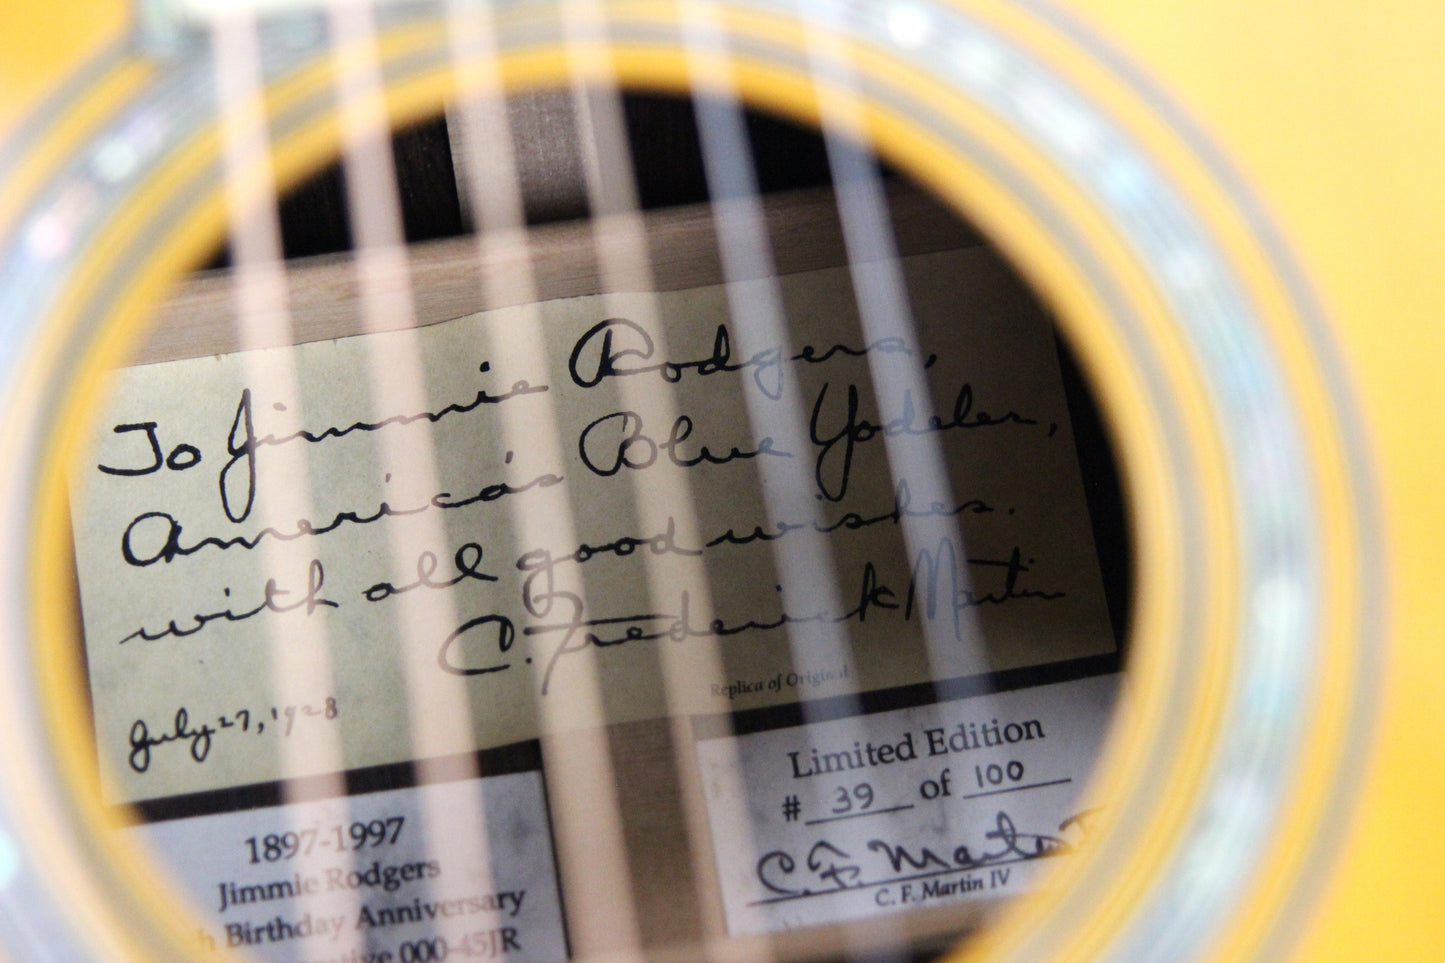 To Jimmie Rodgers,
America's Blue Yodeler,
with all good wishes.
C. Frederick Martin
July 27, 1928
Replica of Original
1897-1997
Jimmie Rodgers
h Birthday Anniversary
ative 000-45JR
Limited Edition
# 39 of 100
C. F. Martin IV
C. F. Martin IV